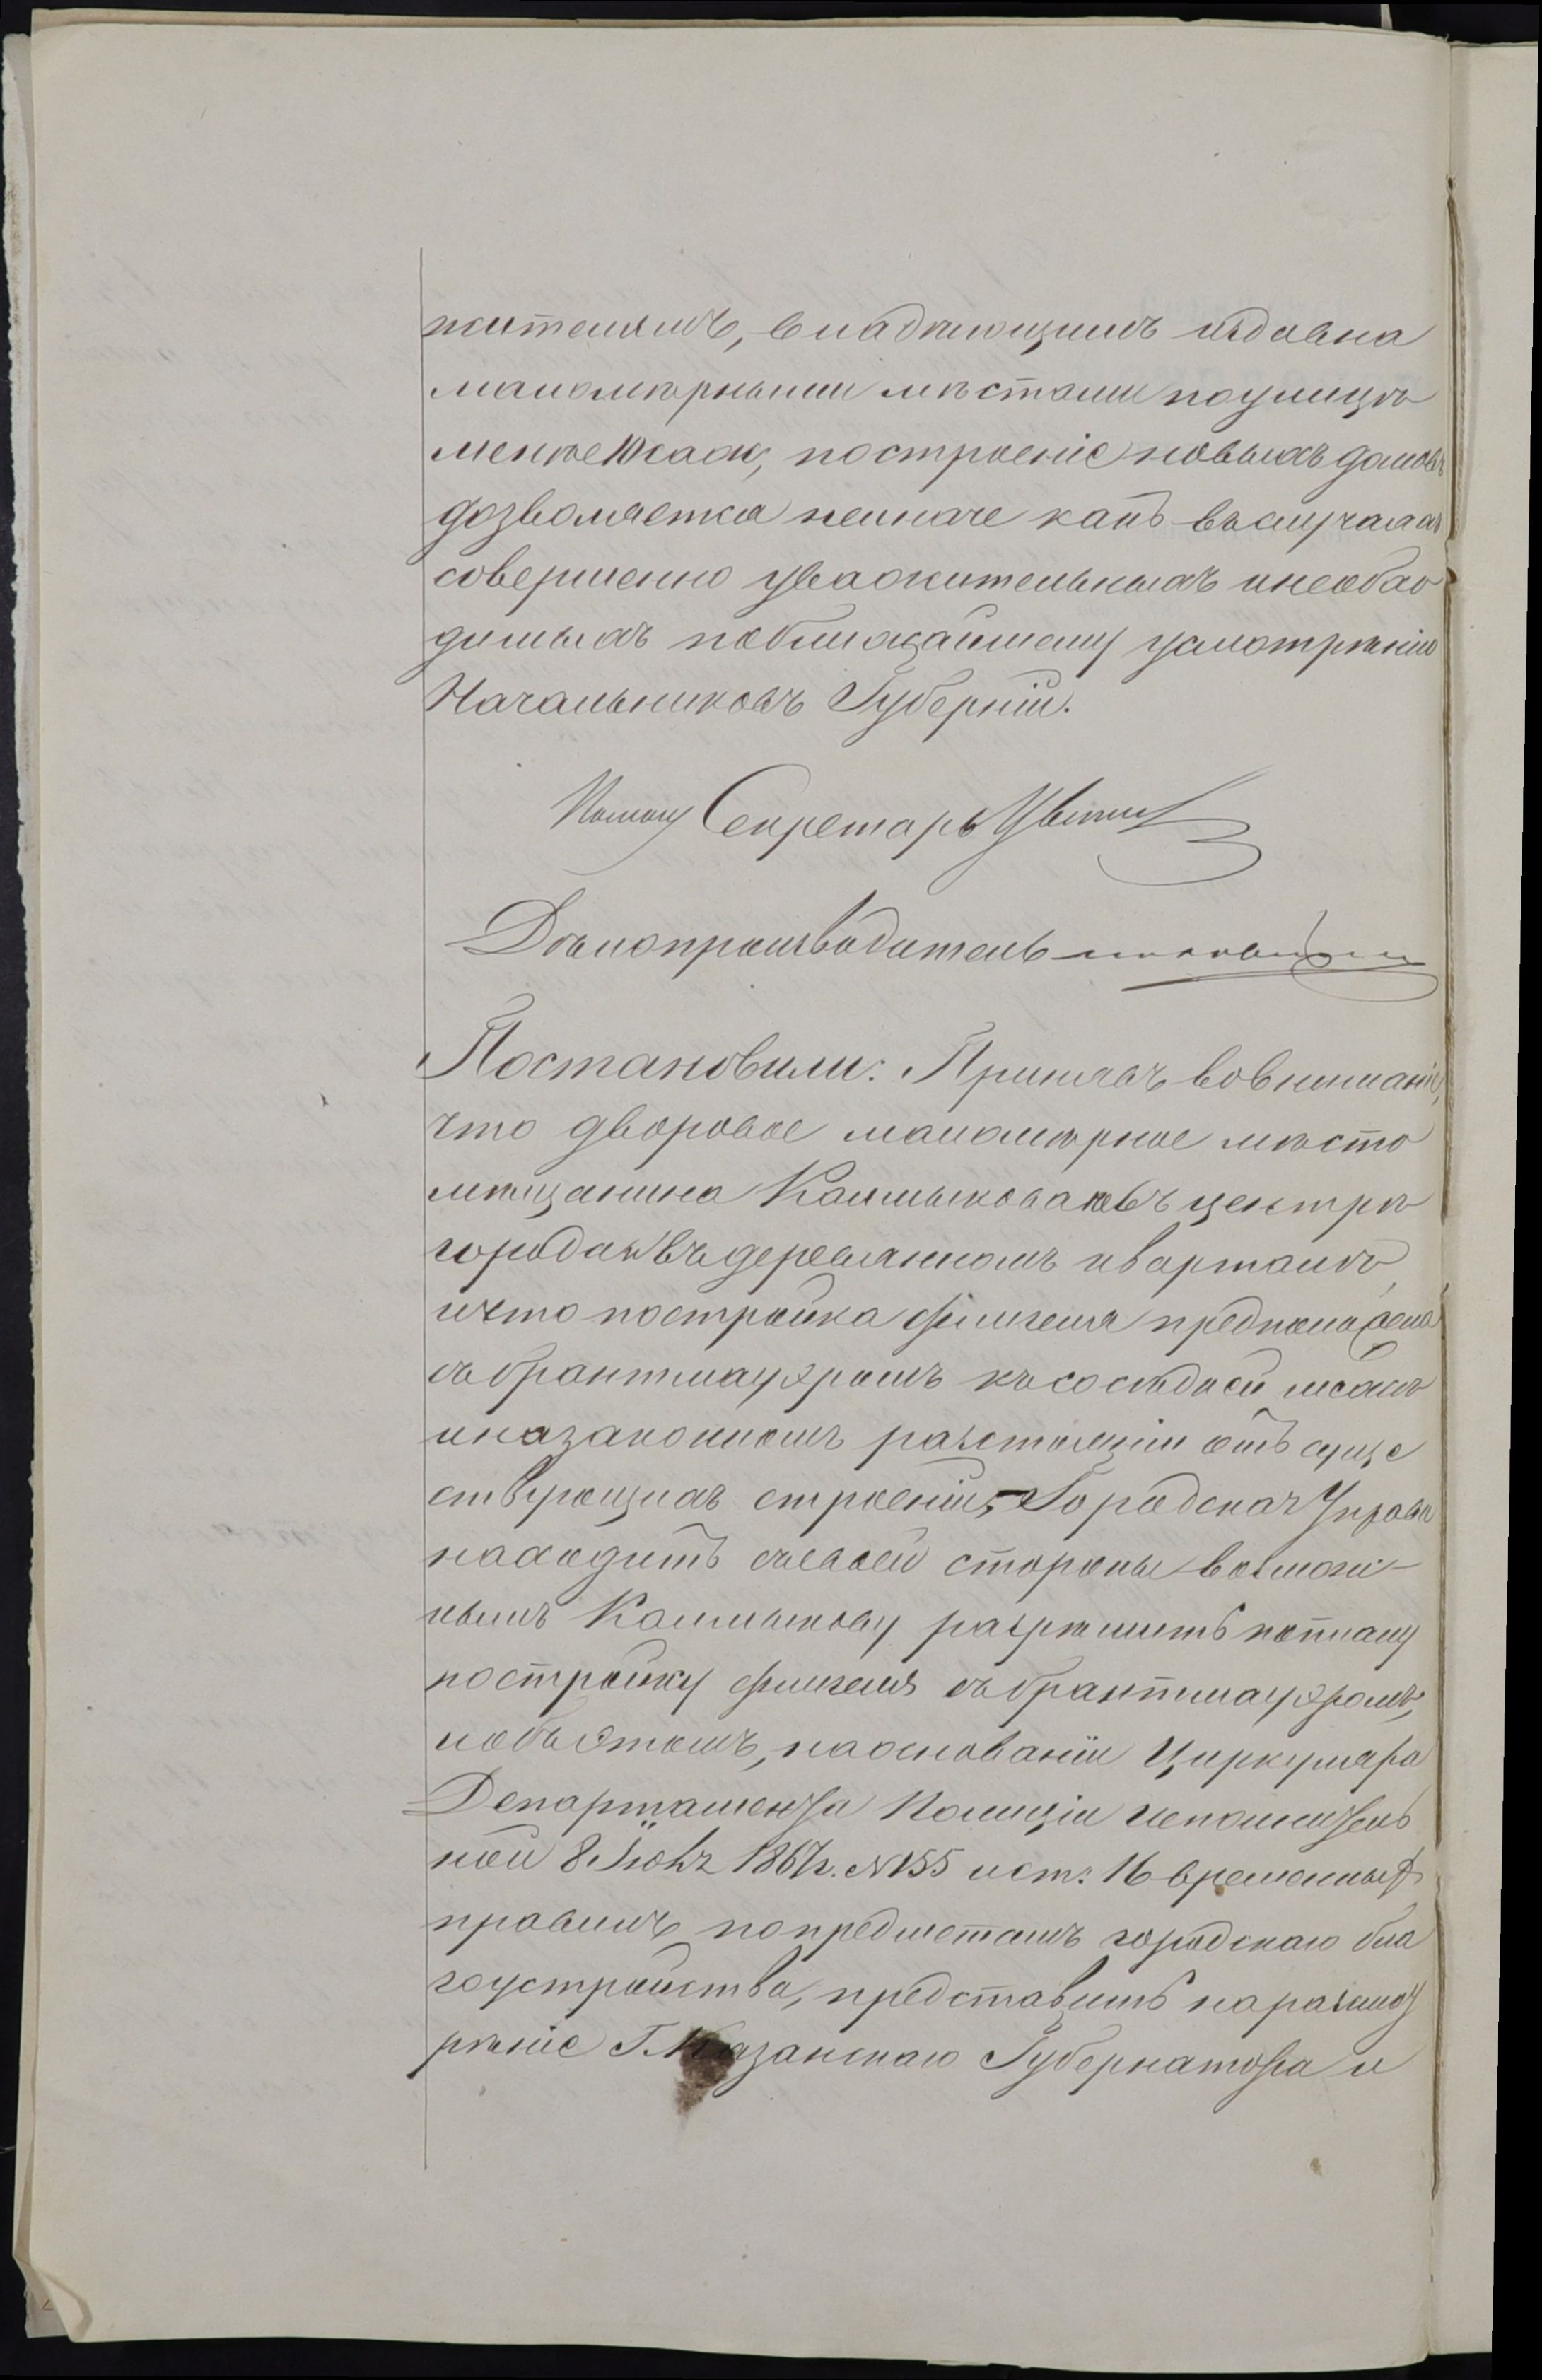 жителямъ, владѣющимъ издавна
маломѣрными мѣстами по улицѣ
менѣе 10 саж, построеніе новыхъ домовъ
дозволяется не иначе какъ въ случаяхъ
совершенно уважительныхъ и необхо
димыхъ по ближайшему усмотрѣнію
Начальниковъ Губерніи.
Помощ Секретаря
Дѣлопроизводитель
Постановили: Принявъ во вниманіе,
что дворовое маломѣрное мѣсто
мѣщанина Калмыкова не въ центрѣ
города и въ деревянномъ кварталѣ,
и что постройка флигеля предположена
съ брантмауэромъ къ сосѣдней межѣ
и на законномъ разстояніи отъ суще
ствующихъ строеній, Городская Управа
находитъ съ своей стороны возмож-
нымъ Калмыкову разрѣшить по плану
постройку флигеля съ брантмауэромъ,
но объ этомъ, на основаніи Циркуляра
Департамента Полиціи Исполнитель
ной 8 Іюня 1867 г. № 155 и ст. 16 временныхъ
правилъ по предметамъ городскаго бла
гоустройства, представить на разсмот
рѣніе Г. Казанскаго Губернатора и